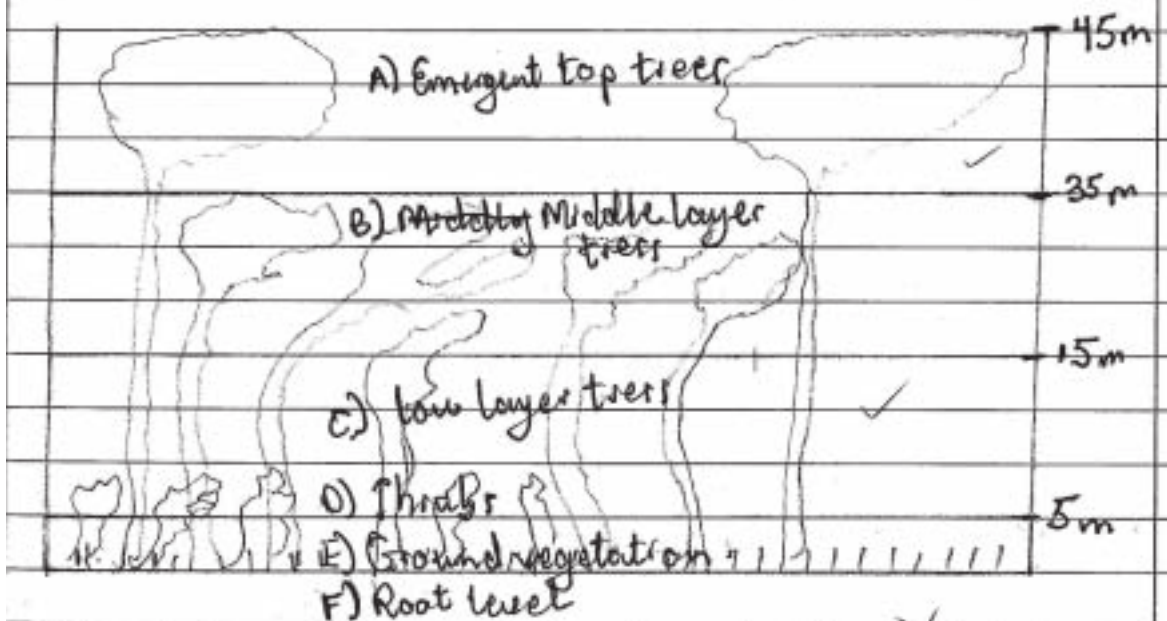 45m
A) Emergent top trees
35m
B) Middley Middle layer
trees
15m
C) low layer trees
D) Shrabs
5m
E) Ground vegetation
F) Root level